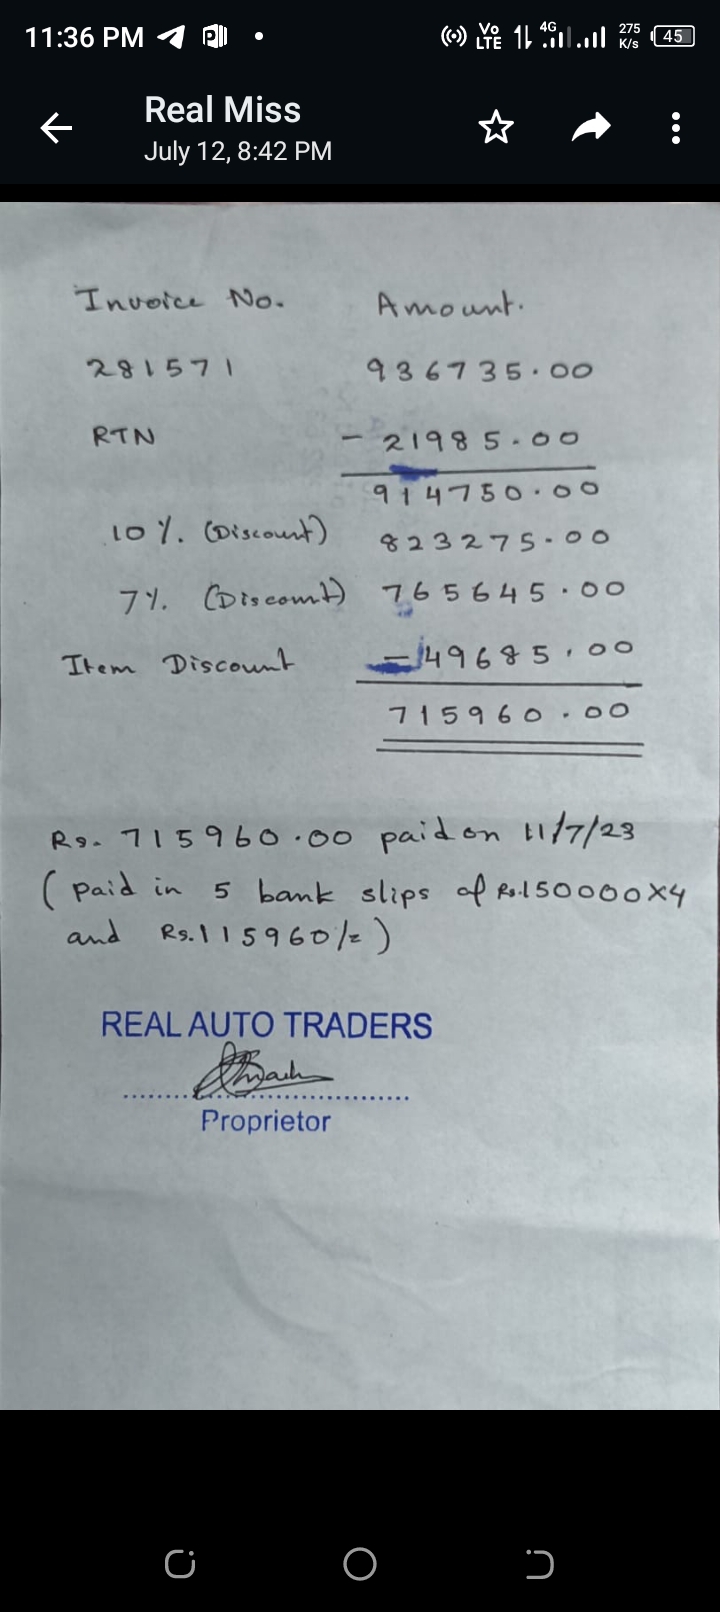 11:36 PM
Vo LTE 4G 275 K/s 45
Real Miss
July 12, 8:42 PM
Invoice No. Amount.
281571 936735.00
RTN - 21985.00
914750.00
10 %. (Discount) 823275.00
7%. (Discount) 765645.00
Item Discount - 49685.00
715960.00
Rs. 715960.00 paid on 11/7/23
( Paid in 5 bank slips of Rs.150000X4
and Rs.115960/= )
REAL AUTO TRADERS
Proprietor